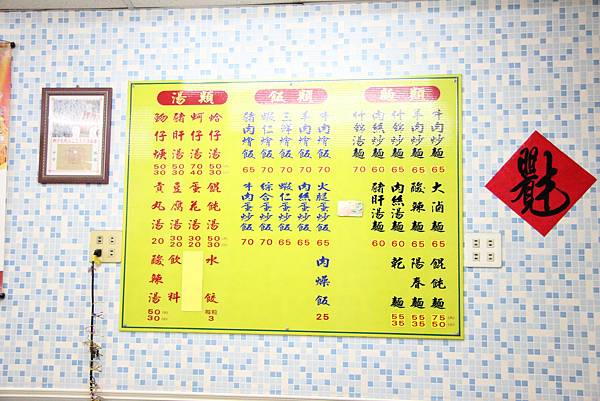 麵類
牛肉炒麵 65
羊肉炒麵 65
什錦炒麵 65
肉絲炒麵 60
什錦湯麵 70
大滷麵 65
酸辣麵 65
肉絲湯麵 60
豬肝湯麵 60
餛飩麵 75(大) 50(小)
陽春麵 55 35
乾麵 55 35
飯類
牛肉燴飯 70
羊肉燴飯 70
三鮮燴飯 70
蝦仁燴飯 70
豬肉燴飯 65
火腿蛋炒飯 65
肉絲蛋炒飯 65
蝦仁蛋炒飯 65
綜合蛋炒飯 70
牛肉蛋炒飯 70
肉燥飯 25
湯類
蛤仔湯 50(大) 30(小)
蚵仔湯 70 40
豬肝湯 50 30
仔湯 50 30
餛飩湯 50(大) 30(小)
蛋花湯 30 20
豆腐湯 30 20
貢丸湯 20
水餃 每粒3
飲料
酸辣湯 50(大) 30(小)